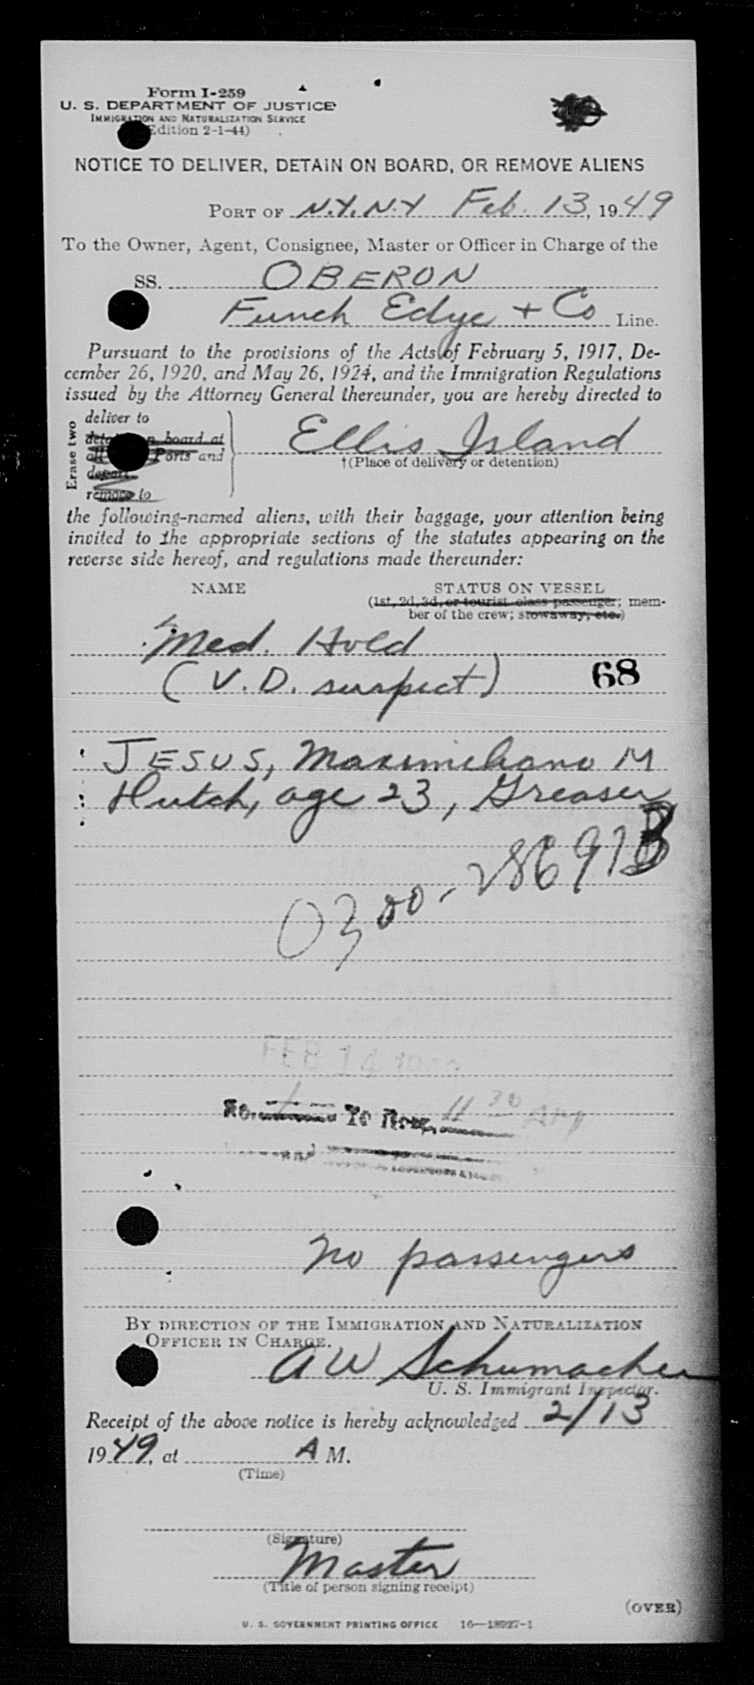 Form I-259
U. S. DEPARTMENT OF JUSTICE
IMMIGRATION AND NATURALIZATION SERVICE
(Edition 2-1-44)
NOTICE TO DELIVER, DETAIN ON BOARD, OR REMOVE ALIENS
PORT OF N.Y. N.Y Feb. 13, 1949
To the Owner, Agent, Consignee, Master or Officer in Charge of the
SS. OBERON
Funch Edye + Co Line.
Pursuant to the provisions of the Acts of February 5, 1917, De-
cember 26, 1920, and May 26, 1924, and the Immigration Regulations
issued by the Attorney General thereunder, you are hereby directed to
Erase two
deliver to
detain on board at
all Ports and
depart
remove to
Ellis Island
†(Place of delivery or detention)
the following-named aliens, with their baggage, your attention being
invited to the appropriate sections of the statutes appearing on the
reverse side hereof, and regulations made thereunder:
NAME STATUS ON VESSEL
(1st, 2d, 3d, or tourist class passenger; mem-
ber of the crew; stowaway, etc.)
Med. Hold
(V.D. suspect) 68
JESUS, Maximiliano M
Dutch, age 23, Greaser
0300-28697
FEB 14
No. 1 To Hosp. 11 30 AM
No passengers
BY DIRECTION OF THE IMMIGRATION AND NATURALIZATION
OFFICER IN CHARGE.
AW Schumacher
U. S. Immigrant Inspector.
Receipt of the above notice is hereby acknowledged 2/13
1949, at A M.
(Time)
(Signature)
Master
(Title of person signing receipt)
(OVER)
U. S. GOVERNMENT PRINTING OFFICE 16—18927-1